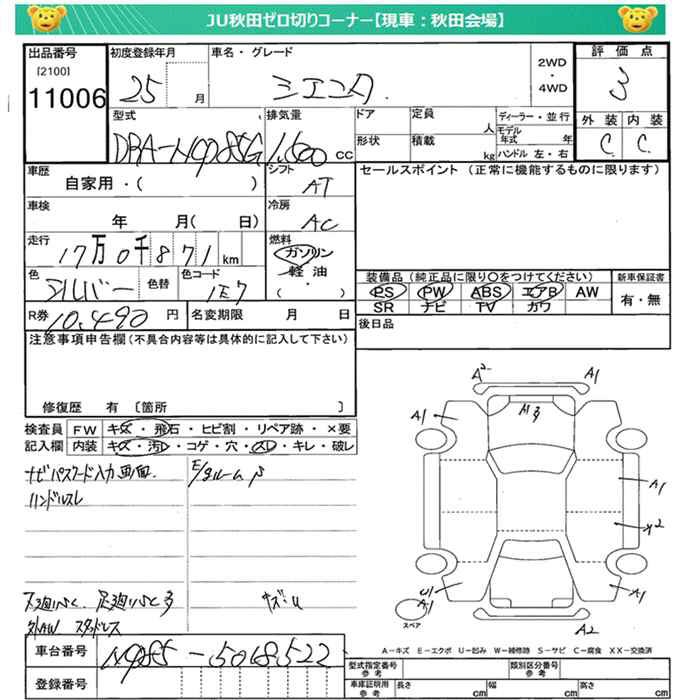 JU秋田ゼロ切りコーナー【現車：秋田会場】
出品番号
[2100]
11006
初度登録年月
25 月
車名・グレード
シエンタ
2WD
・
4WD
評価点
3
外装 内装
C C
型式
DBA-NCP85G
排気量
1,500 cc
ドア
定員
人
形状
積載
kg
ディーラー・並行
モデル年式 年
ハンドル 左・右
車歴
自家用・( )
シフト
AT
セールスポイント (正常に機能するものに限ります)
車検
年 月( 日)
冷房
AC
走行
17万0千871km
燃料
ガソリン
軽油
・
( )
色
シルバー
色替
色コード
1E7
装備品 (純正品に限り○をつけてください)
PS PW ABS エアB AW
SR ナビ TV カワ
新車保証書
有・無
R券
10,490円
名変期限 月 日
後日品
注意事項申告欄(不具合内容等は具体的に記入して下さい)
修復歴 有 〔箇所 〕
検査員 FW キズ・飛石・ヒビ割・リペア跡・×要
記入欄 内装 キズ・汚レ・コゲ・穴・スレ・キレ・破レ
ナビパスワード入力画面.
ハンドルスレ
E/gルーム
下廻り 足廻り
社外AW スタッドレス
A2 A1
A1
A1
A1
A1
A1
A2
スペア
A－キズ E－エクボ U－凹み W－補修跡 S－サビ C－腐食 XX－交換済
車台番号
NCP85-5018522
登録番号
型式指定番号
参考
類別区分番号
参考
車庫証明用
参考
長さ cm 幅 cm 高さ cm